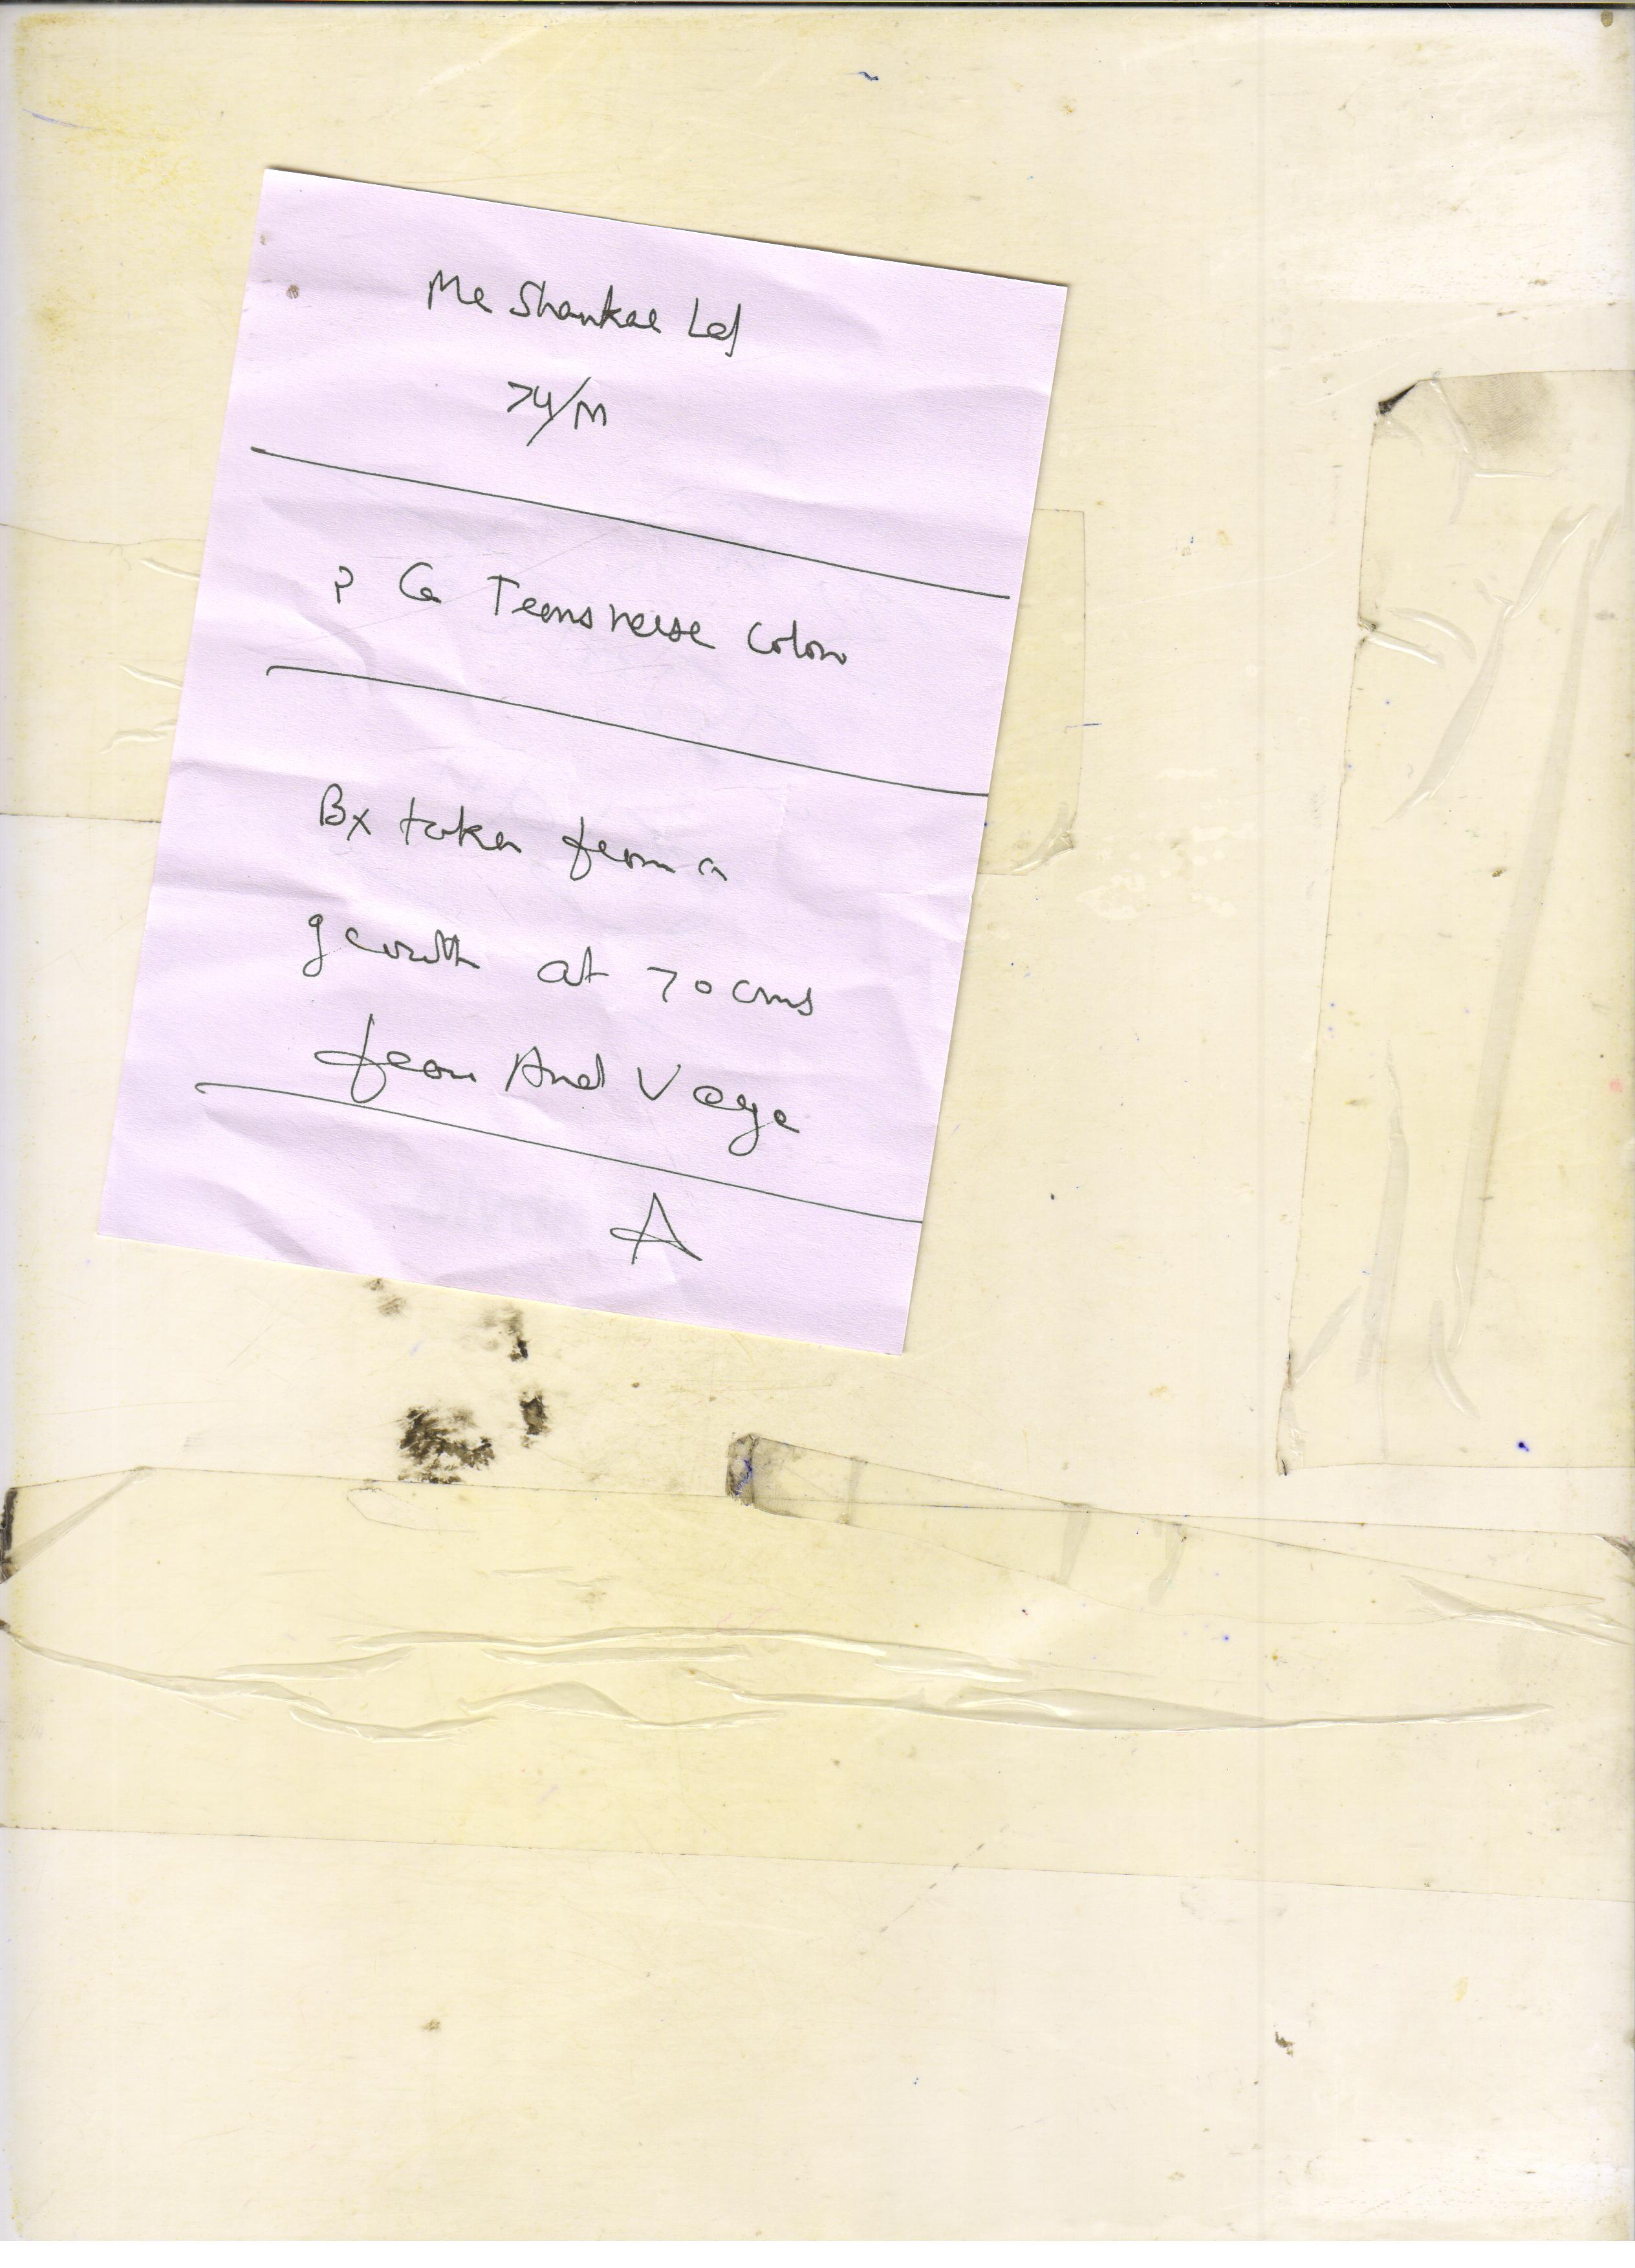 Mr Shankar Lal
74/M
? Ca Transverse Colon
Bx taken from a
growth at 70 cms
from Anal Verge
A